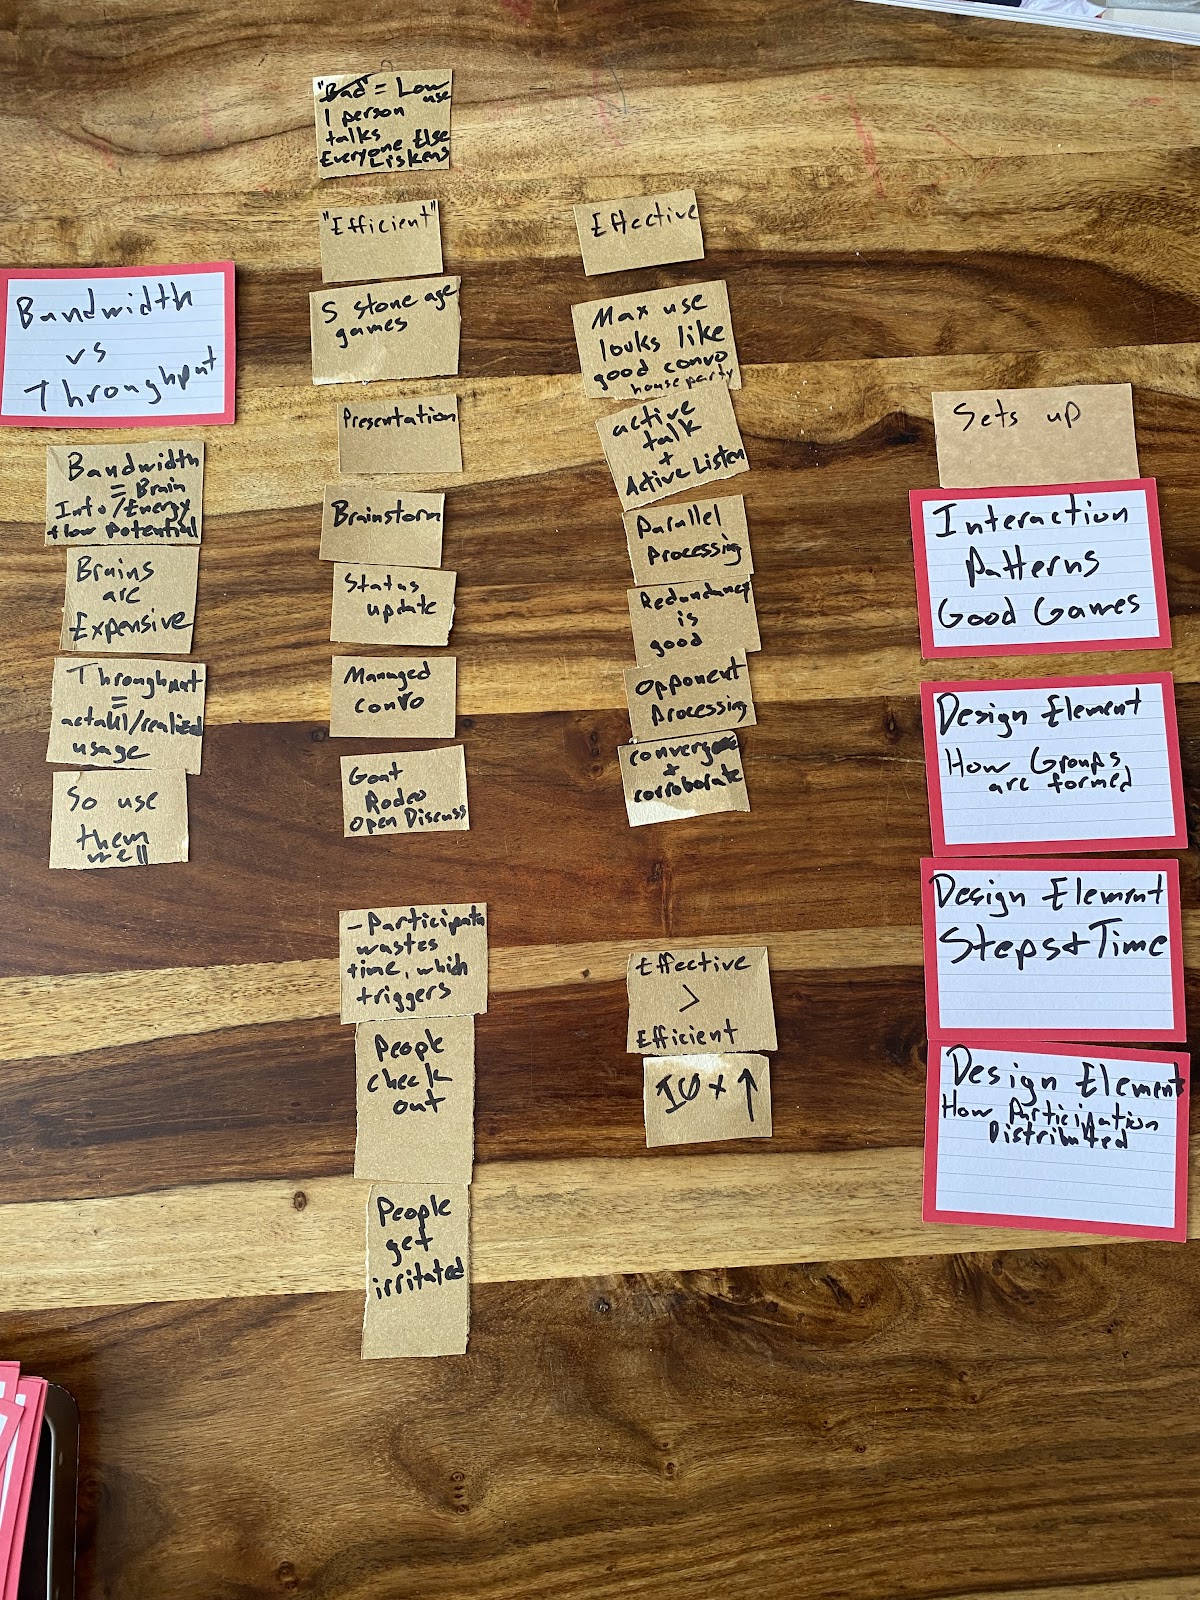 Bandwidth
vs
Throughput
Bandwidth
= Brain
Info/Energy
flow Potential
Brains
are
Expensive
Throughput
=
actual/realized
usage
So use
them
well
"Bad" = Low
use
1 person
talks
Everyone Else
Liskens
"Efficient"
5 stone age
games
Presentation
Brainstorm
Status
update
Managed
convo
Goat
Rodeo
Open Discuss
- Participatn
wastes
time, which
triggers
People
check
out
People
get
irritated
Effective
Max use
looks like
good convo
house party
active
talk
+
Active Listen
Parallel
Processing
Redundancy
is
good
Opponent
Processing
converge
+
corroborate
Effective
>
Efficient
10x ↑
Sets up
Interaction
Patterns
Good Games
Design Element
How Groups
are formed
Design Element
Steps + Time
Design Element
How Participation
Distributed